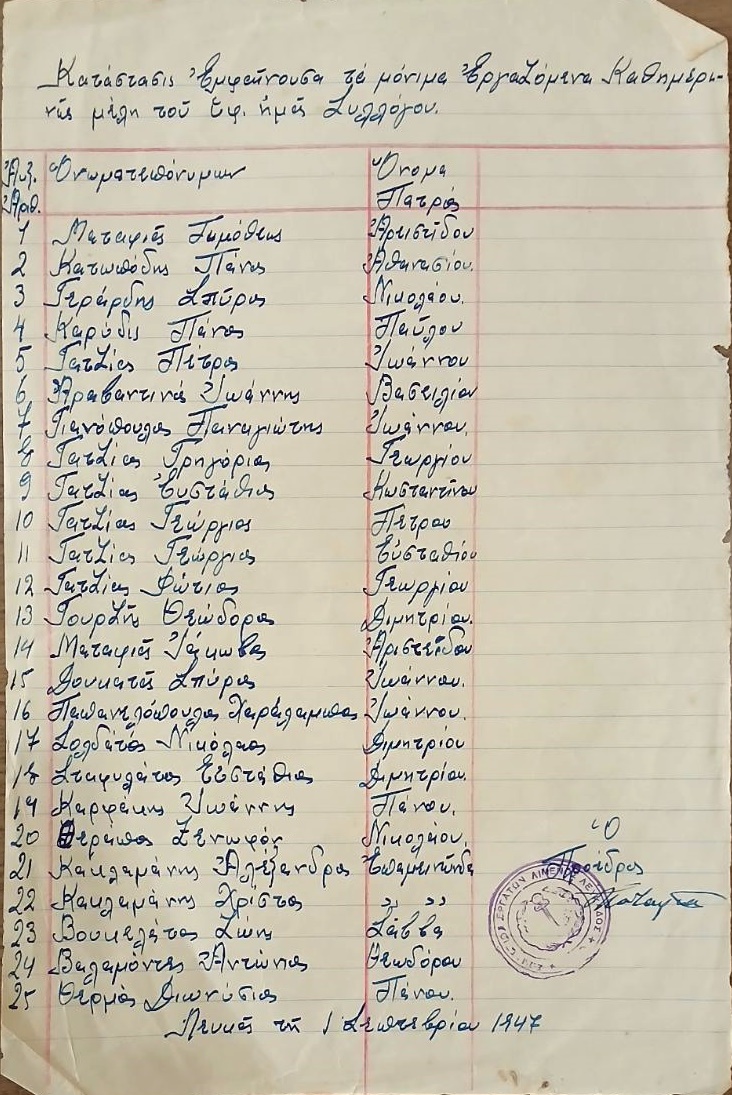 Κατάστασις Ἐμφαίνουσα τά μόνιμα Ἐργαζόμενα Καθημερι-
νῶς μέλη τοῦ ὑφ. ἡμᾶς Συλλόγου.
Αὐξ. Ὀνωματεπόνυμων Ὄνομα
Ἀριθ. Πατρός
1 Ματαφιᾶς Τιμόθεος Ἀριστίδου
2 Κατωπόδης Πάνος Ἀθανασίου.
3 Γεράρδης Σπῦρος Νικολάου.
4 Καρύδις Πάνος Παῦλου
5 Γατζίας Πέτρος Ἰωάννου
6 Ἀραβαντινός Ἰωάννης Βασιλίου
7 Γιανόπουλος Παναγιώτης Ἰωάννου.
8 Γατζίας Γρηγόριος Γεωργίου
9 Γατζίας Εὐστάθιος Κωσταντίνου
10 Γατζίας Γεώργιος Πέτρου
11 Γατζίας Γεώργιος Εὐσταθίου
12 Γατζίας Φώτιος Γεωργίου
13 Γουρζῆς Θεώδορος Διμητρίου.
14 Ματαφιᾶς Ἰάκωβος Ἀριστείδου
15 Δουκατᾶς Σπῦρος Ἰωάννου.
16 Παπαντλόπουλος Χαράλαμπος Ἰωάννου.
17 Σολδάτος Νικόλαος Διμητρίου
18 Σταφυλάτος Εὐστάθιος Διμητρίου.
19 Καρφάκης Ἰωάννης Πάνου.
20 Θεράπος Ξενωφόν Νικολάου. Ὁ
21 Κακλαμάνης Ἀλέξανδρος Ἐπαμεινώνδα Πρόεδρος
22 Κακλαμάνης Χρίστος ,, ,,
23 Βουκελάτος Ζώης Σάββα
24 Βαλαμόντες Ἀντώνιος Θεωδόρου
25 Θερμός Διωνύσιος Πάνου.
Λευκάς τῆ 1 Σεπτεβρίου 1947
ΕΡΓΑΤΩΝ ΛΙΜΕΝΟΣ ΛΕΥΚΑΔΟΣ